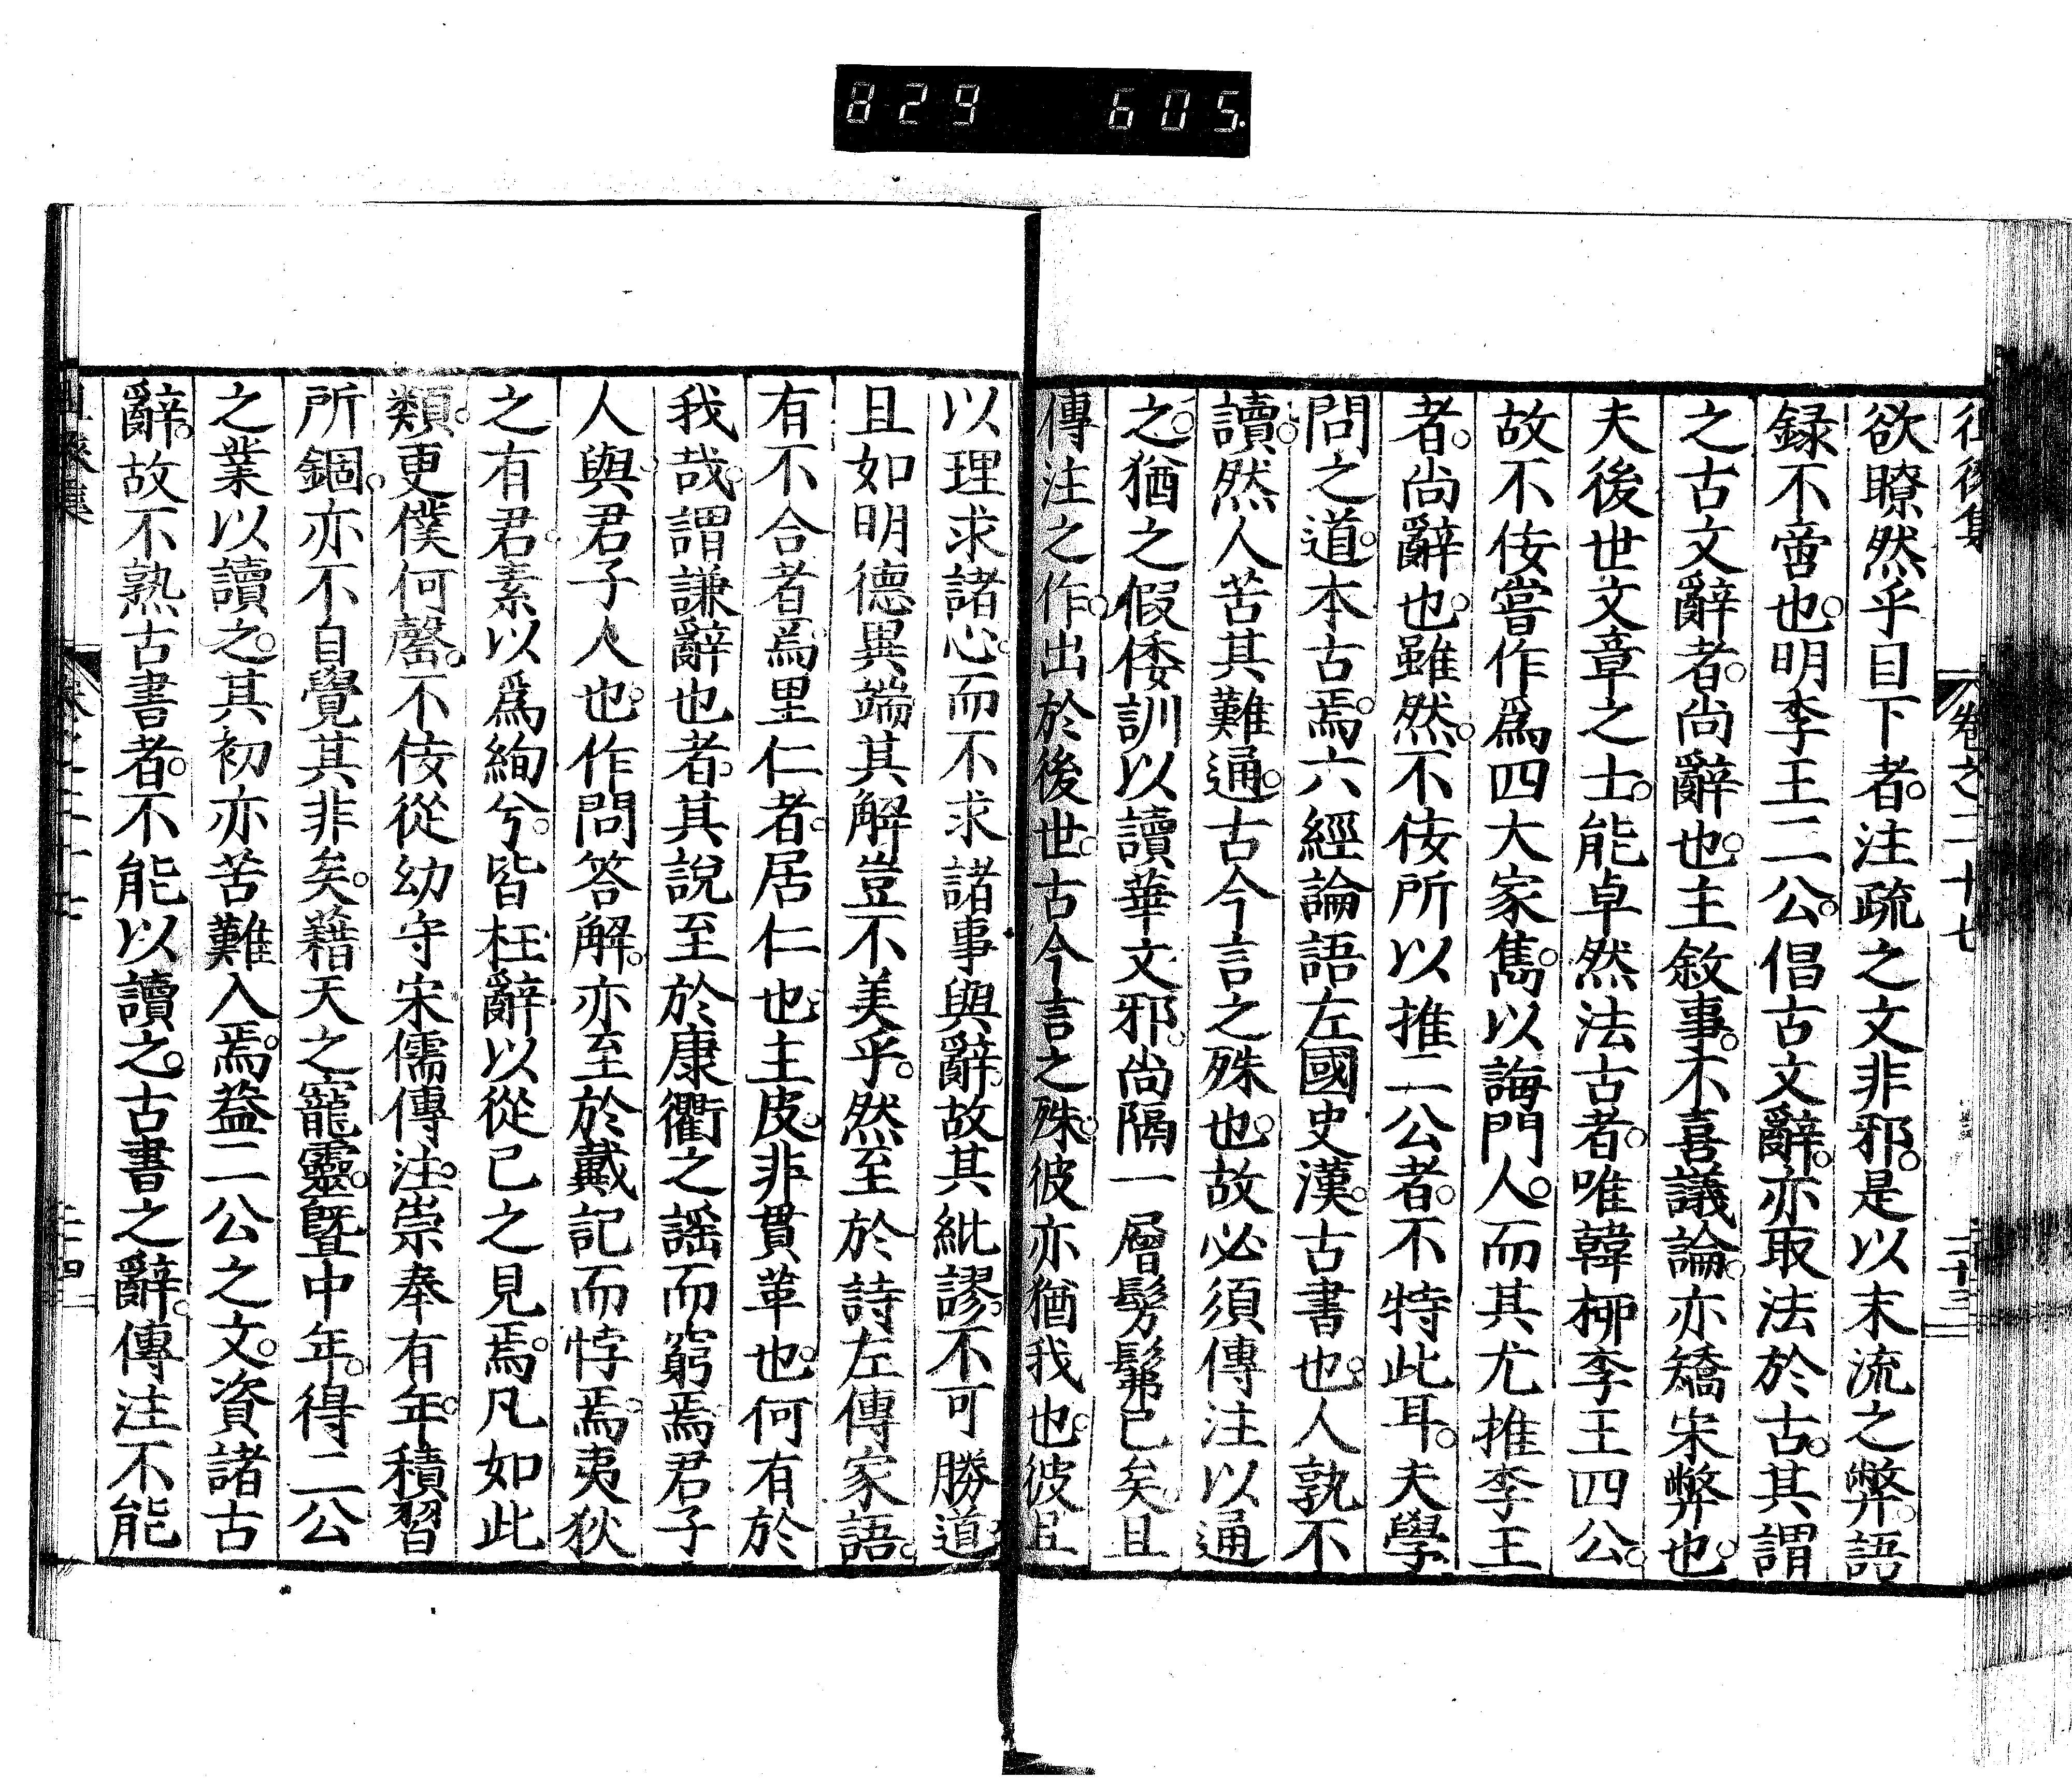 829 605
徂徠集 卷之二十七 二十三
欲瞭然乎目下者。注疏之文非邪。是以末流之弊。語
録不啻也。明李王二公。倡古文辭。亦取法於古。其謂
之古文辭者。尚辭也。主敘事。不喜議論。亦矯宋弊也。
夫後世文章之士。能卓然法古者。唯韓柳李王四公。
故不侫嘗作爲四大家雋。以誨門人。而其尤推李王
者。尚辭也。雖然。不侫所以推二公者。不特此耳。夫學
問之道。本古焉。六經論語左國史漢。古書也。人孰不
讀。然人苦其難通。古今言之殊也。故必須傳注以通
之。猶之假倭訓以讀華文邪。尚隔一層髣髴已矣。且
傳注之作。出於後世。古今言之殊。彼亦猶我也。彼且
以理求諸心。而不求諸事與辭。故其紕謬。不可勝道
且如明德異端其解豈不美乎。然至於詩左傳家語。
有不合者焉。里仁者。居仁也。主皮。非貫革也。何有於
我哉。謂謙辭也者。其說至於康衢之謠而窮焉。君子
人與君子人也。作問答解。亦至於戴記而悖焉。夷狄
之有君。素以爲絢兮。皆枉辭以從己之見焉。凡如此
類。更僕何罄。不侫從幼守宋儒傳注。崇奉有年。積習
所錮。亦不自覺其非矣。藉天之寵靈。曁中年。得二公
之業以讀之。其初亦苦難入焉。蓋二公之文。資諸古
辭。故不熟古書者。不能以讀之。古書之辭。傳注不能